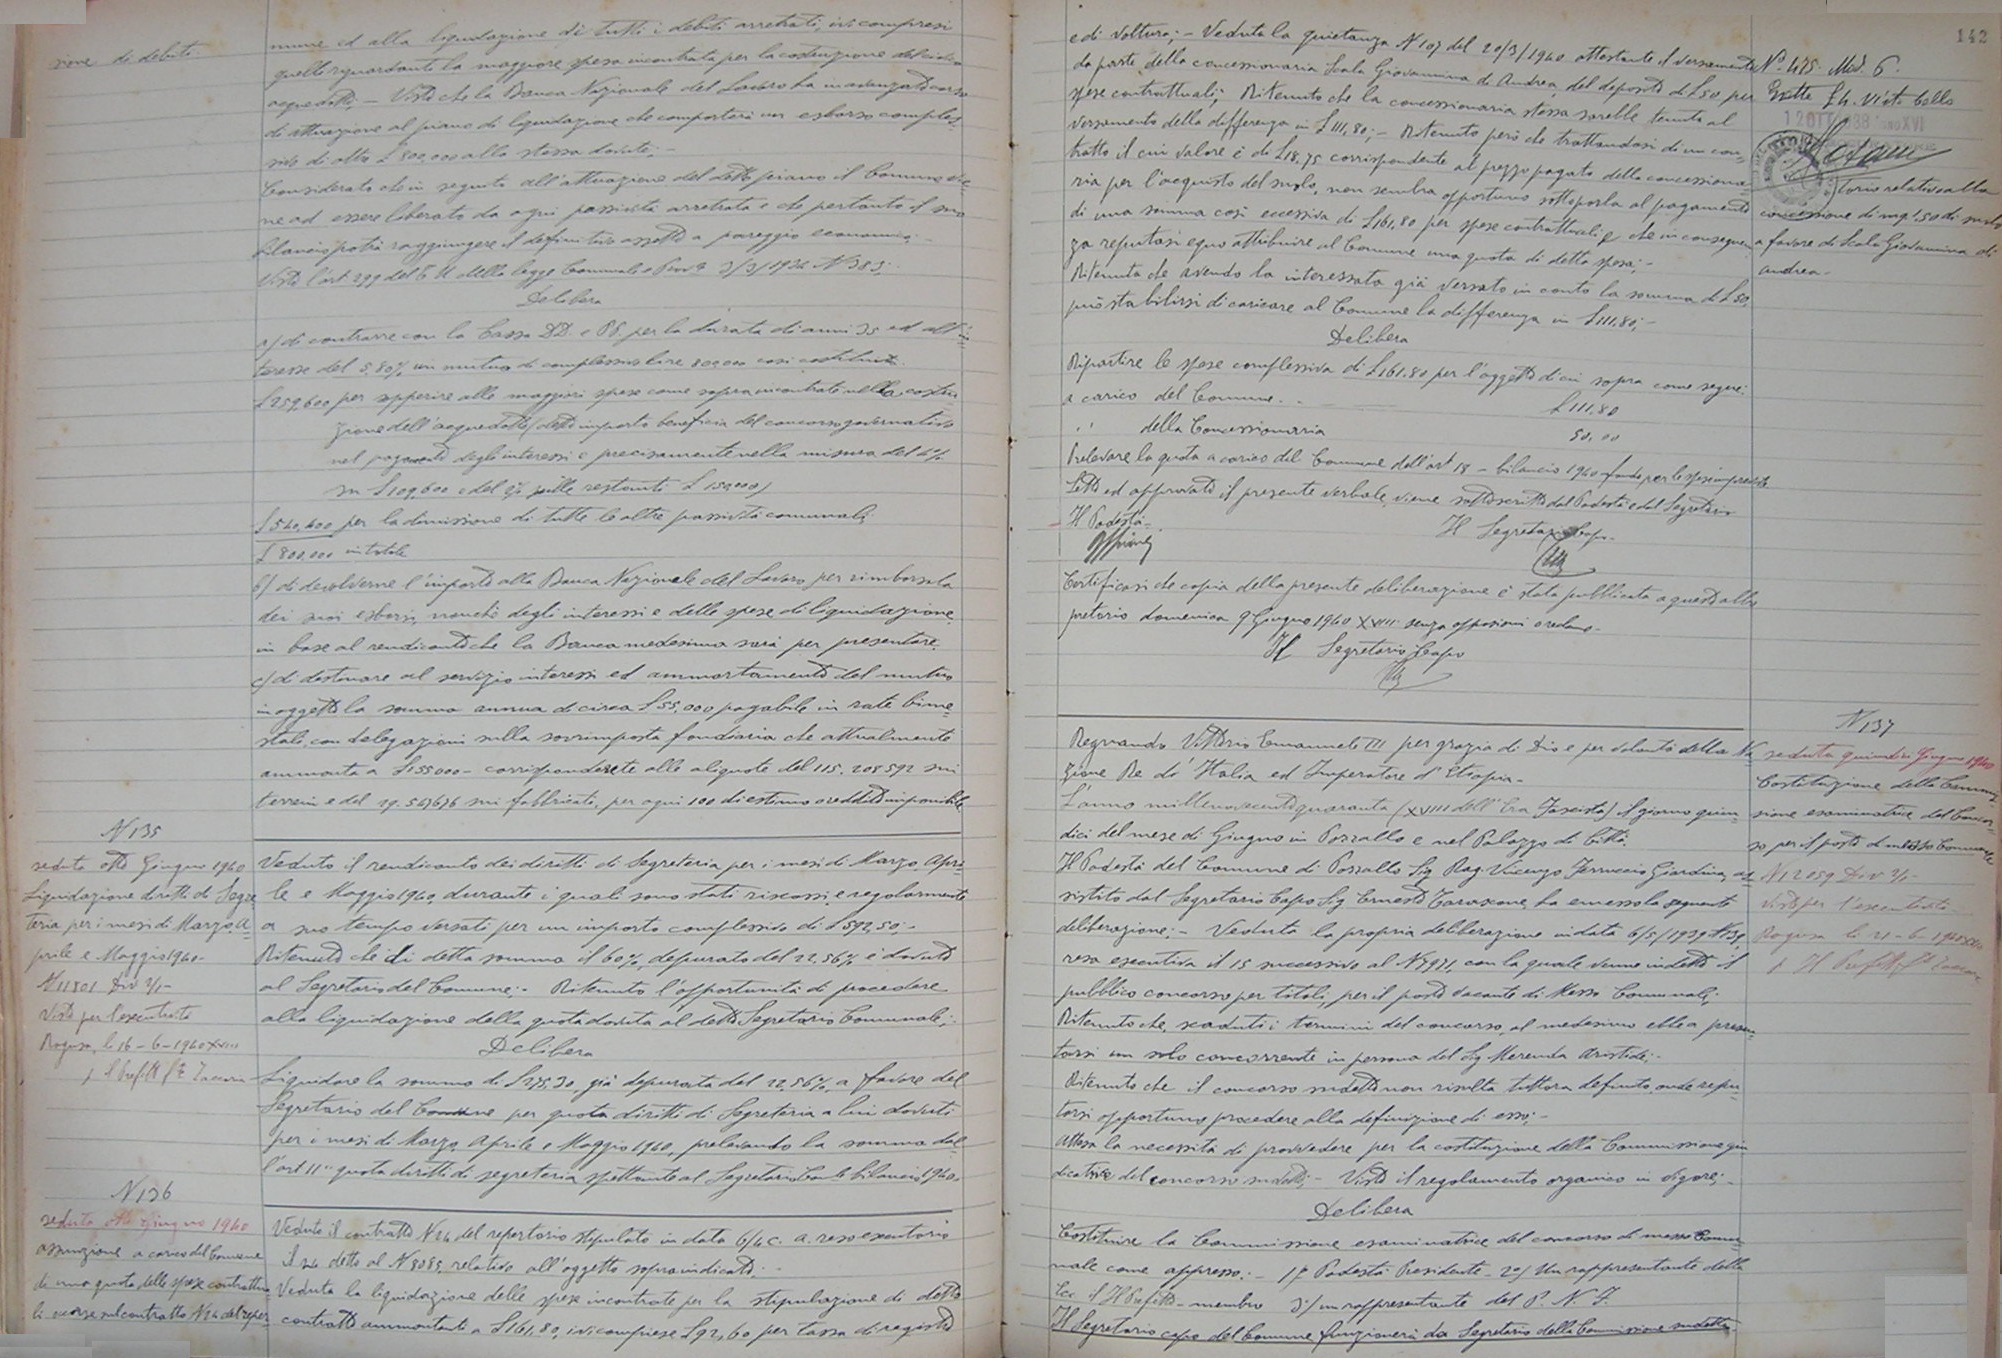 sione di debiti.
mune ed alla liquidazione di tutti i debiti arretrati, ivi compresi
quello riguardante la maggiore spesa incontrata per la costruzione del civico
acquedotto; - Visto che la Banca Nazionale del Lavoro ha in avanzato corso
di attuazione al piano di liquidazione che comporterà un esborso comples-
sivo di oltre £ 800,000 allo stesso dovute; -
Considerato che in seguito all'attuazione del detto piano il Comune vie
ne ad essere liberato da ogni passività arretrata e che pertanto il suo
bilancio potrà raggiungere il definitivo assetto a pareggio economico; -
Visto l'art. 299 del T. U. della legge Comunale e Prov. 3/3/1934 N 383;
Delibera
a) di contrarre con la Cassa DD. e PP. per la durata di anni 35 ed all'in-
teresse del 5,80% un mutuo di complessive lire 800,000 così costituito
£ 259,600 per sopperire alle maggiori spese come sopra incontrate nella costru
zione dell'acquedotto (detto importo beneficia del concorso governativo
nel pagamento degli interessi e precisamente nella misura del 4%
su £ 109,600 e del 2% sulle restanti £ 150,000)
£ 540,400 per la dimissione di tutte le altre passività comunali;
£ 800,000 in totale
b) di devolverne l'importo alla Banca Nazionale del Lavoro per rimborso
dei suoi esborsi, nonchè degli interessi e delle spese di liquidazione
in base al rendiconto che la Banca medesima sarà per presentare.
c) di destinare al servizio interessi ed ammortamento del mutuo
in oggetto la somma annua di circa £ 55,000 pagabile in rate bime-
strali, con delegazioni sulla sovrimposta fondiaria che attualmente
ammonta a £ 155000 - corrispondente alle aliquote del 115. 208592 sui
terreni e del 29. 567676 sui fabbricati, per ogni 100 di estimo o reddito imponibile
N 135
seduta otto Giugno 1940
Liquidazione diritti di Segre
teria per i mesi di Marzo, A-
prile e Maggio 1940.
N 11801 Div 2/1-
Visto per l'esecutorietà
Ragusa, li 16-6-1940 XVIII
p. il Prefetto fto Zaccaria
Veduto il rendiconto dei diritti di Segreteria per i mesi di Marzo, Apri-
le e Maggio 1940, durante i quali sono stati riscossi e regolarmente
a suo tempo versati per un importo complessivo di £ 592,50; -
Ritenuto che di detta somma il 60% depurato del 22,56% è dovuto
al Segretario del Comune; - Ritenuto l'opportunità di procedere
alla liquidazione della quota dovuta al detto Segretario Comunale;
Delibera
Liquidare la somma di £ 275,30, già depurata del 22,56%, a favore del
Segretario del Comune per quota diritti di Segreteria a lui dovuti
per i mesi di Marzo, Aprile e Maggio 1940, prelevando la somma dal
l'art. 11 "quota diritti di segreteria spettante al Segretario Com.le bilancio 1940.
N 136
seduta otto Giugno 1940
assunzione a carico del Comune
di una quota delle spese contrattua
li incorse sul contratto N 24 del reper
Veduto il contratto N 24 del repertorio stipulato in data 6/4 c. a. reso esecutorio
il 24 detto al N 8085, relativo all'oggetto sopraindicato; -
Veduta la liquidazione delle spese incontrate per la stipulazione di detto
contratto ammontanti a £ 161,80, ivi comprese £ 92,60 per tassa di registro
142
e di voltura; - Veduta la quietanza N 107 del 20/3/1940 attestante il versamento
da parte della concessionaria Scala Giovannina di Andrea, del deposito di £ 50, per
spese contrattuali; Ritenuto che la concessionaria stessa sarebbe tenuta al
versamento della differenza in £ 111,80; - Ritenuto però che trattandosi di un con-
tratto il cui valore è di £ 18,75 corrispondente al prezzo pagato dalla concessiona-
ria per l'acquisto del suolo, non sembra opportuno sottoporla al pagamento
di una somma così eccessiva di £ 161,80 per spese contrattuali e che in conseguen
za reputasi equo attribuire al Comune una quota di detta spesa; -
Ritenuta che avendo la interessata già versato in conto la somma di £ 50,
può stabilirsi di caricare al Comune la differenza in £ 111,80; -
Delibera
Ripartire le spese complessiva di £ 161,80 per l'oggetto di cui sopra come segue:
a carico del Comune. . . £ 111,80
" della Concessionaria 50,00
Prelevare la quota a carico del Comune dall'art 18 - bilancio 1940 - fondo per le spese impreviste
Letto ed approvato il presente verbale, viene sottoscritto dal Podestà e dal Segretario
Il Podestà - Il Segretario Capo.
Certificasi che copia della presente deliberazione è stata pubblicata a questo albo
pretorio domenica 9 Giugno 1940 XVIII senza opposizioni o reclami.
Il Segretario Capo
N° 475. Mod. 6.
12 OTT 1938 Anno XVI
torio relativo alla
concessione di mq. 1.50 di suolo
a favore di Scala Giovannina di
Andrea -
N 137
seduta quindici Giugno 1940
Costituzione della Commis-
sione esaminatrice del Concor-
so per il posto di messo Comunale
N 12059 Div 2/1-
Visto per l'esecutorietà
Ragusa li 21-6-1940 XVIII
p. Il Prefetto fto Zaccaria
Regnando Vittorio Emanuele III per grazia di Dio e per volontà della Na
zione Re d'Italia ed Imperatore d'Etiopia -
L'anno millenovecentoquaranta (XVIII dell'Era Fascista) il giorno quin-
dici del mese di Giugno in Pozzallo e nel Palazzo di Città.
Il Podestà del Comune di Pozzallo Sig. Rag. Vincenzo Ferruccio Giardina, as-
sistito dal Segretario Capo Sig Ernesto Tarascone, ha emesso la seguente
deliberazione; - Veduta la propria deliberazione in data 6/5/1939 N 139,
resa esecutiva il 15 successivo al N 7971, con la quale venne indetto il
pubblico concorso per titoli, per il posto vacante di Messo Comunale;
Ritenuto che, scaduti i termini del concorso, al medesimo ebbe a presen-
tarsi un solo concorrente in persona del Sig. Merenda Aristide; -
Ritenuto che il concorso sudetto non risulta tuttora definito, onde repu-
tasi opportuno procedere alla definizione di esso; -
Attesa la necessità di provvedere per la costituzione della Commissione giu
dicatrice del concorso sudetto; - Visto il regolamento organico in vigore; -
Delibera
Costituire la Commissione esaminatrice del concorso di messo Comu-
nale come appresso: - 1° Podestà Presidente - 2°) Un rappresentante della
Ecc. il Il Prefetto - membro 3°) un rappresentante del P. N. F.
Il Segretario capo del Comune funzionerà da Segretario della Commissione sudetta.